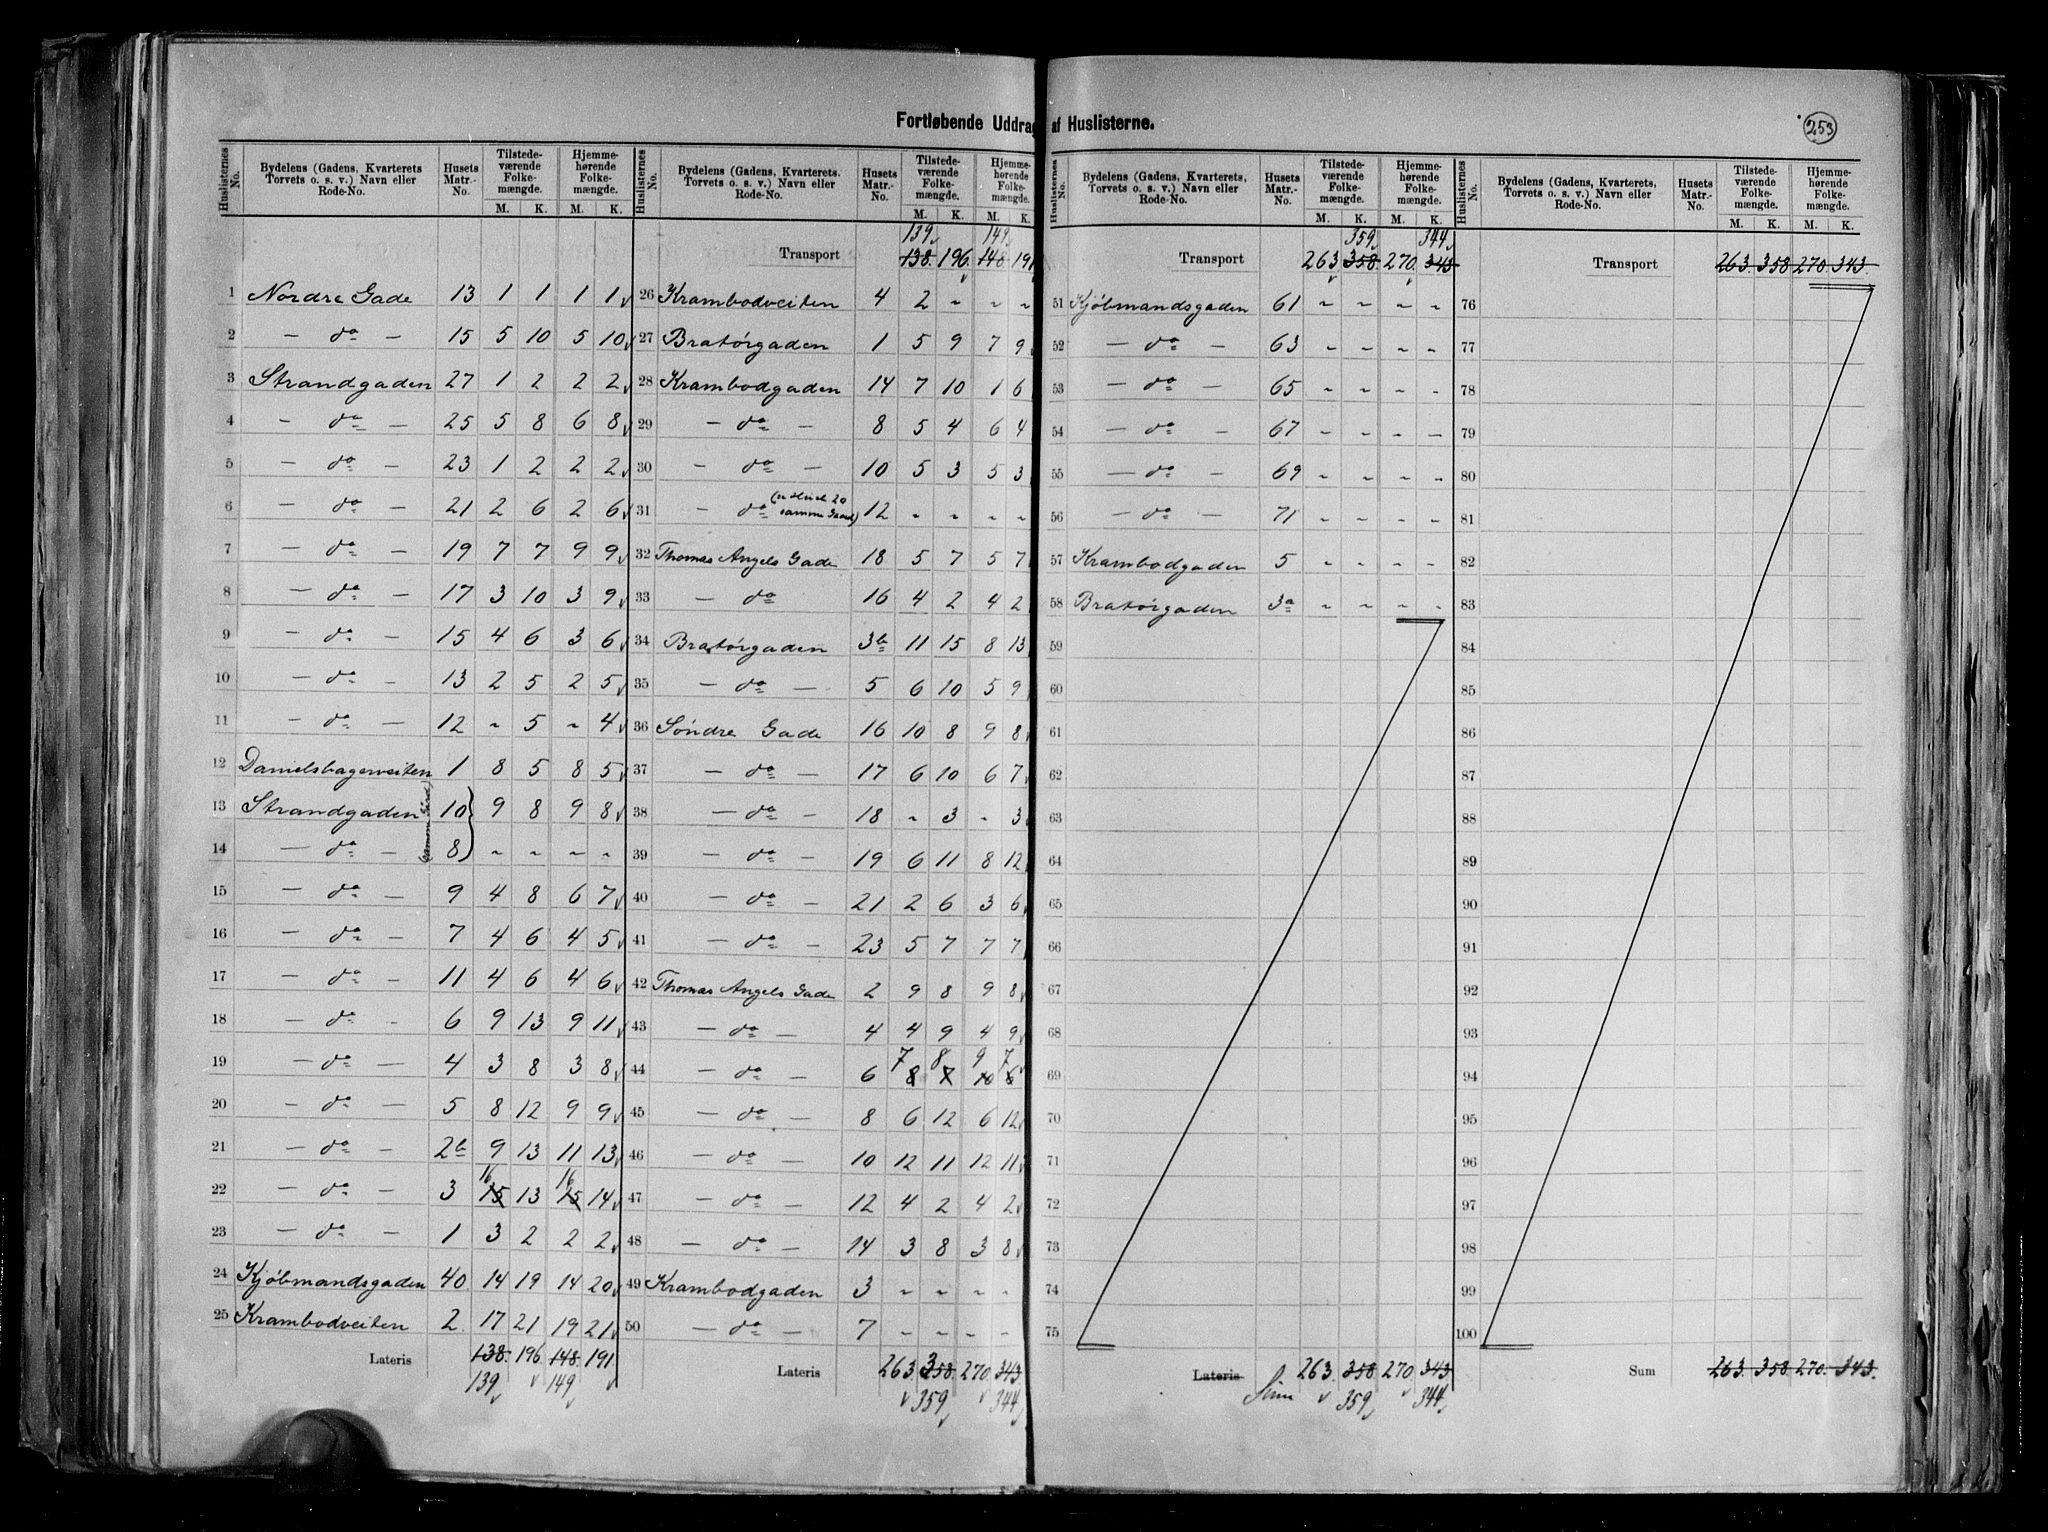 Fortløbende Uddrag af Huslisterne.
253
Huslisternes No. | Bydelens (Gadens, Kvarterets Torvets o. s. v.) Navn eller Rode-No. | Husets Matr.-No. | Tilstedeværende Folkemængde. M. K. | Hjemmehørende Folkemængde. M. K.
1 Nordre Gade 13 1 1 1 1
2 — do — 15 5 10 5 10
3 Strandgaden 27 1 2 2 2
4 — do — 25 5 8 6 8
5 — do — 23 1 2 2 2
6 — do — 21 2 6 2 6
7 — do — 19 7 7 9 9
8 — do — 17 3 10 3 9
9 — do — 15 4 6 3 6
10 — do — 13 2 5 2 5
11 — do — 12 „ 5 „ 4
12 Danielsbagerveiten 1 8 5 8 5
13 Strandgaden (samme Gård) 10 9 8 9 8
14 — do — 8 „ „ „ „
15 — do — 9 4 8 6 7
16 — do — 7 4 6 4 5
17 — do — 11 4 6 4 6
18 — do — 6 9 13 9 11
19 — do — 4 3 8 3 8
20 — do — 5 8 12 9 9
21 — do — 2b 9 13 11 13
16 16
22 — do — 3 15 13 15 14
23 — do — 1 3 2 2 2
24 Kjøbmandsgaden 40 14 19 14 20
25 Krambodveiten 2 17 21 19 21
Lateris 138. 196 148. 191
139 149
Huslisternes No. | Bydelens (Gadens, Kvarterets, Torvets o. s. v.) Navn eller Rode-No. | Husets Matr.-No. | Tilstedeværende Folkemængde. M. K. | Hjemmehørende Folkemængde. M. K.
139 149
Transport 138. 196 148 191
26 Krambodveiten 4 2 „ „ „
27 Bratørgaden 1 5 9 7 9
28 Krambodgaden 14 7 10 1 6
29 — do — 8 5 4 6 4
30 — do — 10 5 3 5 3
31 — do 12 „ „ „ „
32 Thomas Angels Gade 18 5 7 5 7
33 — do 16 4 2 4 2
34 Bratørgaden 3b 11 15 8 13
35 — do — 5 6 10 5 9
36 Søndre Gade 16 10 8 9 8
37 — do — 17 6 10 6 7
38 — do — 18 „ 3 „ 3
39 — do — 19 6 11 8 12
40 — do — 21 2 6 3 6
41 — do — 23 5 7 7 7
42 Thomas Angels Gade 2 9 8 9 8
43 — do — 4 4 9 4 9
7 8 9 7
44 — do — 6 8 7 10 6
45 — do — 8 6 12 6 12
46 — do — 10 12 11 12 11
47 — do — 12 4 2 4 2
48 — do — 14 3 8 3 8
49 Krambodgaden 3 „ „ „ „
50 — do — 7 „ „ „ „
Lateris 263. 358. 270. 343
359 344
Huslisternes No. | Bydelens (Gadens, Kvarterets, Torvets o. s. v.) Navn eller Rode-No. | Husets Matr.-No. | Tilstedeværende Folkemængde. M. K. | Hjemmehørende Folkemængde. M. K.
359 344
Transport 263 358. 270. 343
51 Kjøbmandsgaden 61 „ „ „ „
52 — do — 63 „ „ „ „
53 — do — 65 „ „ „ „
54 — do — 67 „ „ „ „
55 — do — 69 „ „ „ „
56 — do — 71 „ „ „ „
57 Krambodgaden 5 „ „ „ „
58 Bratørgaden 3a „ „ „ „
59
60
61
62
63
64
65
66
67
68
69
70
71
72
73
74
75
Lateris 263. 358 270. 343
Sum 359 344
Huslisternes No. | Bydelens (Gadens, Kvarterets, Torvets o. s. v.) Navn eller Rode-No. | Husets Matr.-No. | Tilstedeværende Folkemængde. M. K. | Hjemmehørende Folkemængde. M. K.
Transport 263. 358 270. 343
76
77
78
79
80
81
82
83
84
85
86
87
88
89
90
91
92
93
94
95
96
97
98
99
100
Sum 263. 358. 270. 343.